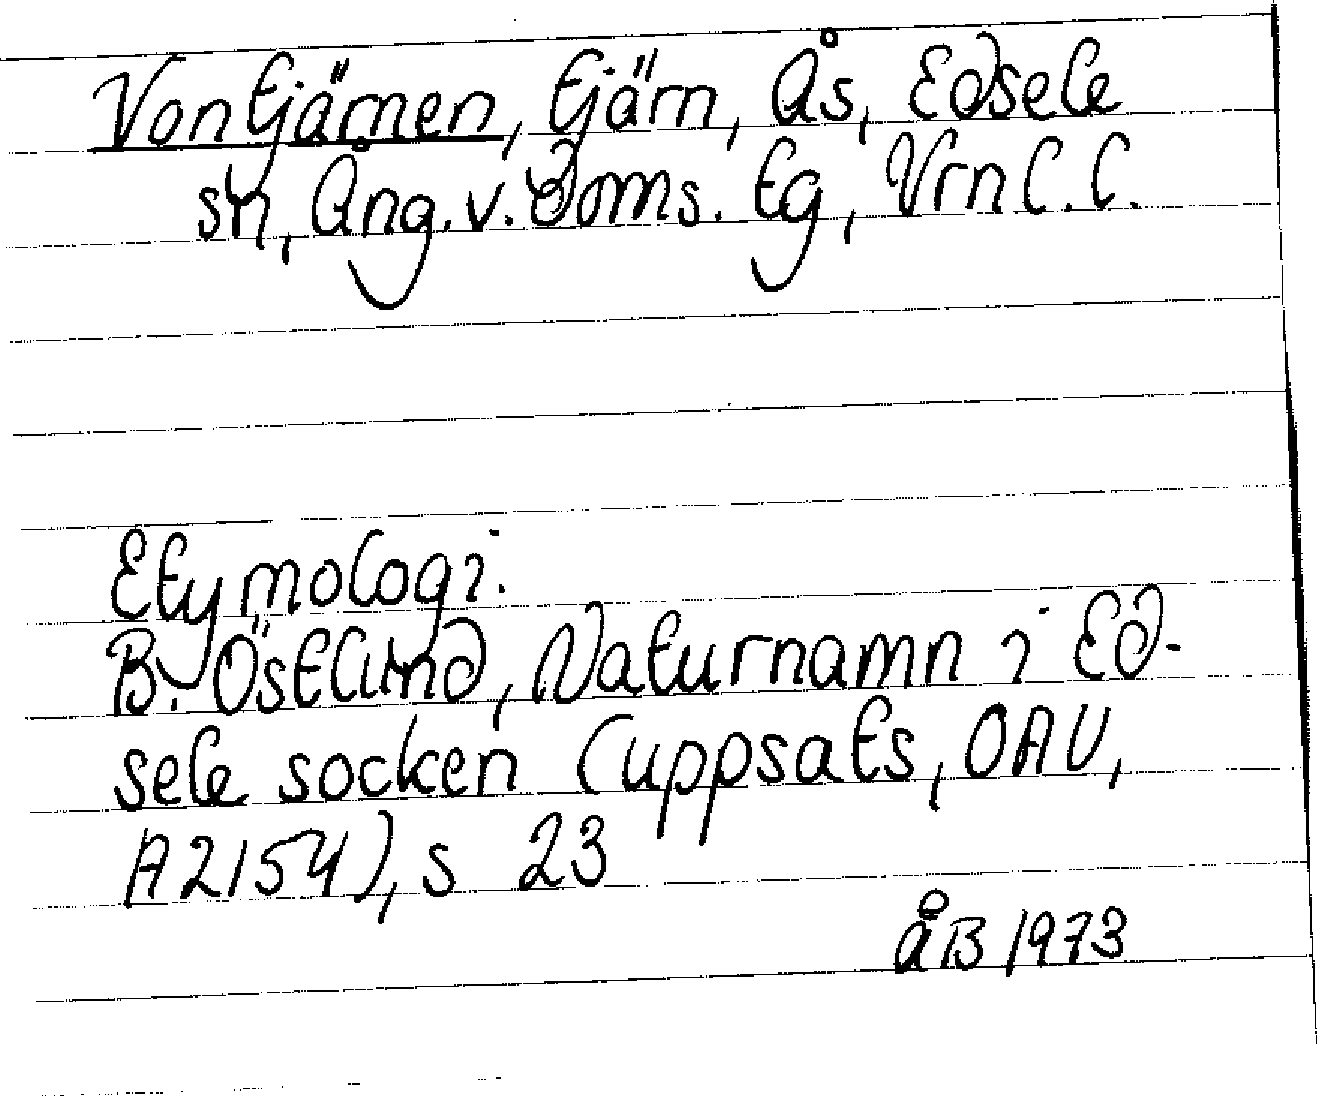 Vontjärnen, tjärn, Ås, Edsele
sn, Ång. v. Doms. tg, Vrnl. l.
Etymologi:
B. Östlund, Naturnamn i Ed-
sele socken (uppsats, OAU,
A2154), s 23
åB 1973